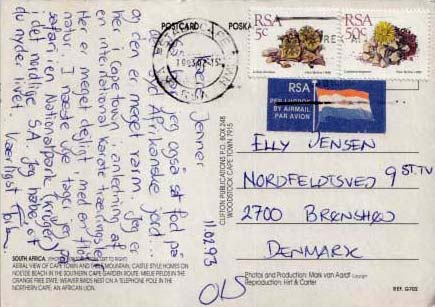 POSTCARD
RSA
5c
RSA
50c
RSA
PER LUGPOS
BY AIRMAIL
PAR AVION
Jenner
jeg også sat fod på
den Syd Afrikanske jord.
og den er meget varm. Jeg er
her i Cape town i anledning af
en international karate træningslejr
Her er meget dejligt, med en flot
natur. I næste uge tager jeg på
safari i en Nationalpark (Krüger)
i det nordlige SA. Jeg håber at
du nyder livet.
11.02.93
ELLY JENSEN
NORDFELDTSVEJ 9 ST. TV
2700 BRØNSHØJ
DENMARK
CLIFTON PUBLICATIONS P.O. BOX 248
WOODSTOCK CAPE TOWN 7915
SOUTH AFRICA.
AERIAL VIEW OF CAPE TOWN AND TABLE MOUNTAIN; CASTLE STYLE HOMES ON
NOETZIE BEACH IN THE SOUTHERN CAPE GARDEN ROUTE; MIELIE FIELDS IN THE
ORANGE FREE STATE; WEAVER BIRDS NEST ON A TELEPHONE POLE IN THE
NORTHERN CAPE; AN AFRICAN LION.
Photos and Production: Mark van Aardt
Reproduction: Hirt & Carter
REF. G702